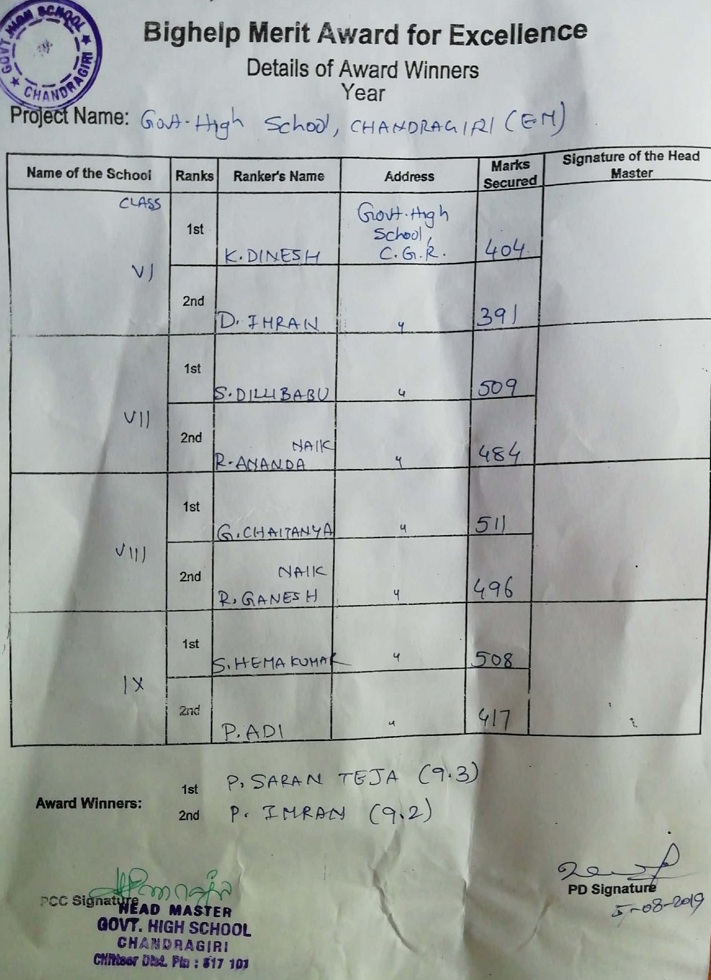 GOVT HIGH SCHOOL
CHANDRAGIRI
Bighelp Merit Award for Excellence
Details of Award Winners
Year
Project Name: Govt. High School, CHANDRAGIRI (EM)
Name of the School Ranks Ranker's Name Address Marks Secured Signature of the Head Master
CLASS
VI
1st K. DINESH Govt. High School, C.G.R. 404
2nd D. IMRAN " 391
VII
1st S. DILLI BABU " 509
2nd R. ANANDA NAIK " 484
VIII
1st G. CHAITANYA " 511
2nd R. GANESH NAIK " 496
IX
1st S. HEMA KUMAR " 508
2nd P. ADI " 417
Award Winners:
1st P. SARAN TEJA (9.3)
2nd P. IMRAN (9.2)
PCC Signature
HEAD MASTER
GOVT. HIGH SCHOOL
CHANDRAGIRI
Chittoor Dist. Pin : 517 101
PD Signature
5-08-2019